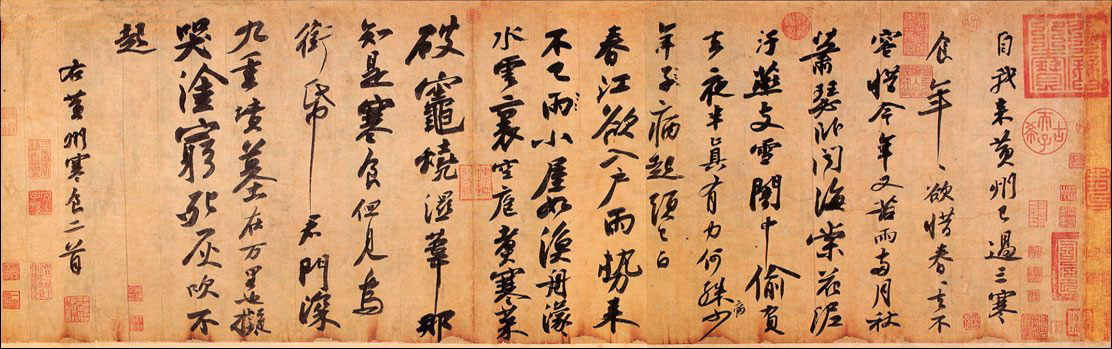 自我來黃州已過三寒
食年〻欲惜春〻去不
容惜今年又苦雨兩月秋
蕭瑟臥聞海棠花泥
汙燕支雪闇中偷負
去夜半真有力何殊病少
年子病起頭已白
春江欲入戶雨勢來
不已雨小屋如漁舟濛〻
水雲裏空庖煮寒菜
破竈燒濕葦那
知是寒食但見烏
銜帋君門深
九重墳墓在万里也擬
哭塗窮死灰吹不
起
右黃州寒食二首
古希天子